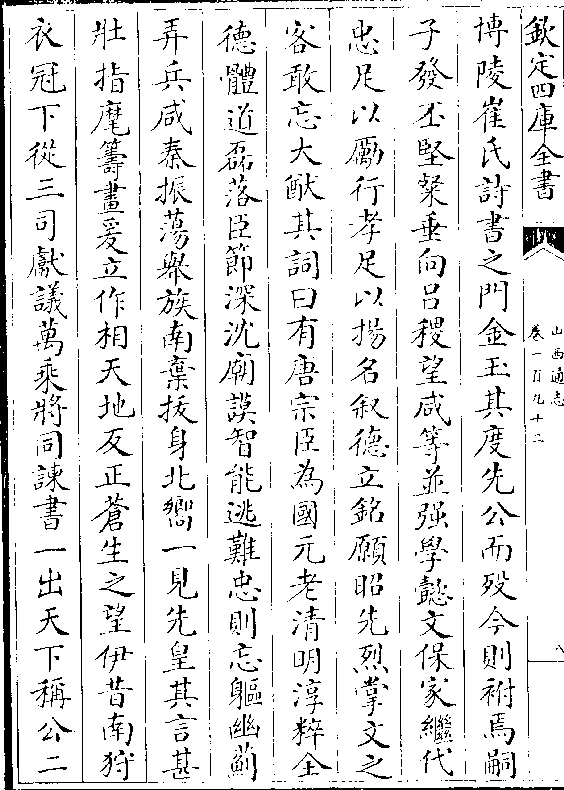 欽定四庫全書
山西通志
卷一百九十二
八
博陵崔氏詩書之門金玉其度先公而殁今則祔焉嗣
子發丕堅棨垂向吕稷望咸等並强學懿文保家繼代
忠足以勵行孝足以揚名叙德立銘願昭先烈掌文之
客敢忘大猷其詞曰有唐宗臣為國元老清明淳粹全
德體道磊落臣節深沈廟謨智能逃難忠則忘軀幽薊
弄兵咸秦振蕩舉族南棄拔身北嚮一見先皇其言甚
壯指麾籌畫爰立作相天地反正蒼生之望伊昔南狩
衣冠下從三司獻議萬乘將同諫書一出天下稱公二